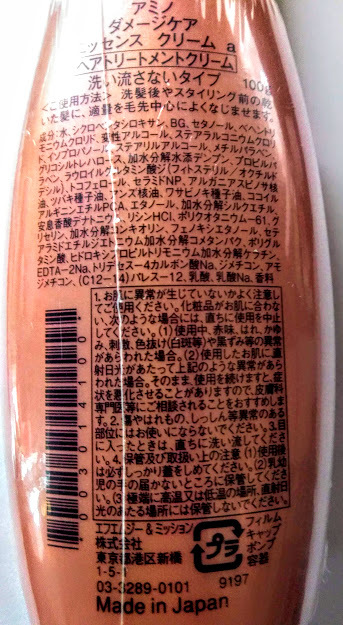 アミノ
ダメージケア
エッセンス クリーム a
ヘアトリートメントクリーム
洗い流さないタイプ 100g
＜ご使用方法＞ 洗髪後やスタイリング前の乾
いた髪に、適量を毛先中心によくなじませます。
成分:水、シクロペンタシロキサン、BG、セタノール、ベヘントリ
モニウムクロリド、変性アルコール、ステアラルコニウムクロリ
ド、イソプロパノール、ステアリルアルコール、メチルパラベン、
グリコシルトレハロース、加水分解水添デンプン、プロピルパ
ラベン、ラウロイルグルタミン酸ジ(フィトステリル/オクチルド
デシル)、トコフェロール、セラミドNP、アルガニアスピノサ核
油、ツバキ種子油、アンズ核油、ワサビノキ種子油、ココイル
アルギニンエチルPCA、エタノール、加水分解シルクエチル、
安息香酸デナトニウム、リシンHCl、ポリクオタニウム-61、グ
リセリン、加水分解コンキオリン、フェノキシエタノール、セテ
アラミドエチルジエトニウム加水分解コメタンパク、ポリグル
タミン酸、ヒドロキシプロピルトリモニウム加水分解ケラチン、
EDTA-2Na、トリデセス-4カルボン酸Na、ジメチコン、アモ
ジメチコン、(C12-14)パレス-12、乳酸、乳酸Na、香料
1.お肌に異常が生じていないかよく注意し
てご使用ください。化粧品がお肌に合わな
い、次のような場合には、直ちに使用を中止
してください。(1)使用中、赤味、はれ、かゆ
み、刺激、色抜け(白斑等)や黒ずみ等の異常
があらわれた場合。(2)使用したお肌に直
射日光があたって上記のような異常があら
われた場合。そのまま、使用を続けますと、症
状を悪化させることがありますので、皮膚科
専門医等にご相談されることをおすすめしま
す。2.傷やはれもの、しっしん等異常のある
部位にはお使いにならないでください。3.目
に入ったときは、直ちに洗い流してくださ
い。4.保管及び取扱い上の注意(1)使用後
は必ずしっかり蓋をしめてください。(2)乳幼
児の手の届かないところに保管してくださ
い。(3)極端に高温又は低温の場所、直射日
光のあたる場所には保管しないでください。
エフエムジー&ミッション
株式会社
東京都港区新橋
1-5-
03-3289-0101
9197
Made in Japan
プラ
フィルム
キャップ
ポンプ
容器